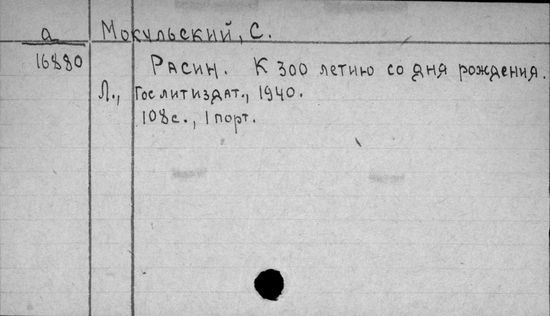 а Мокульский, С.
16880 Расин. К 300 летию со дня рождения.
Л., Гослитиздат., 1940.
108с., 1 порт.